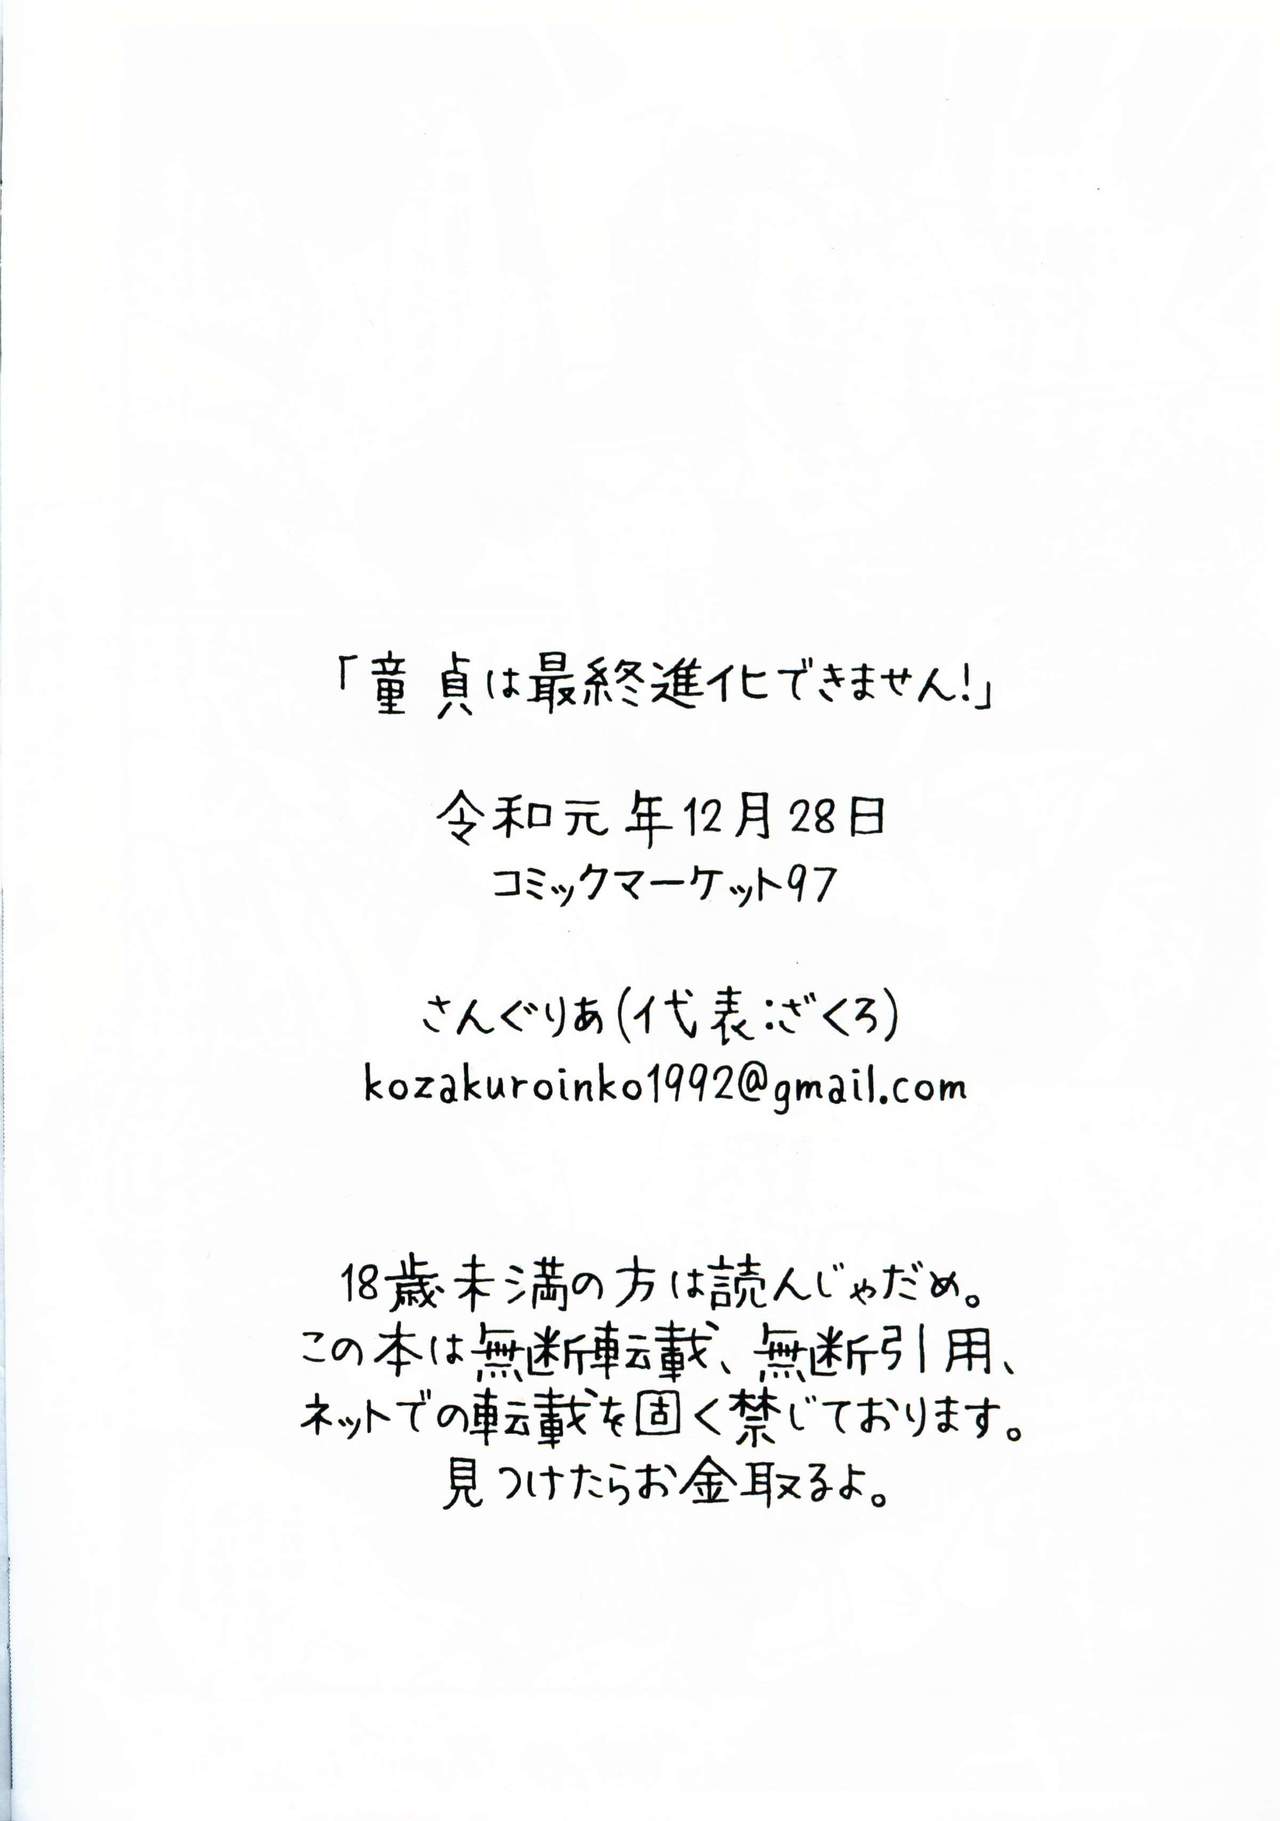 「童貞は最終進化できません!」
令和元年12月28日
コミックマーケット97
さんぐりあ(代表:ざくろ)
kozakuroinko1992@gmail.com
18歳未満の方は読んじゃだめ。
この本は無断転載、無断引用、
ネットでの転載を固く禁じております。
見つけたらお金取るよ。